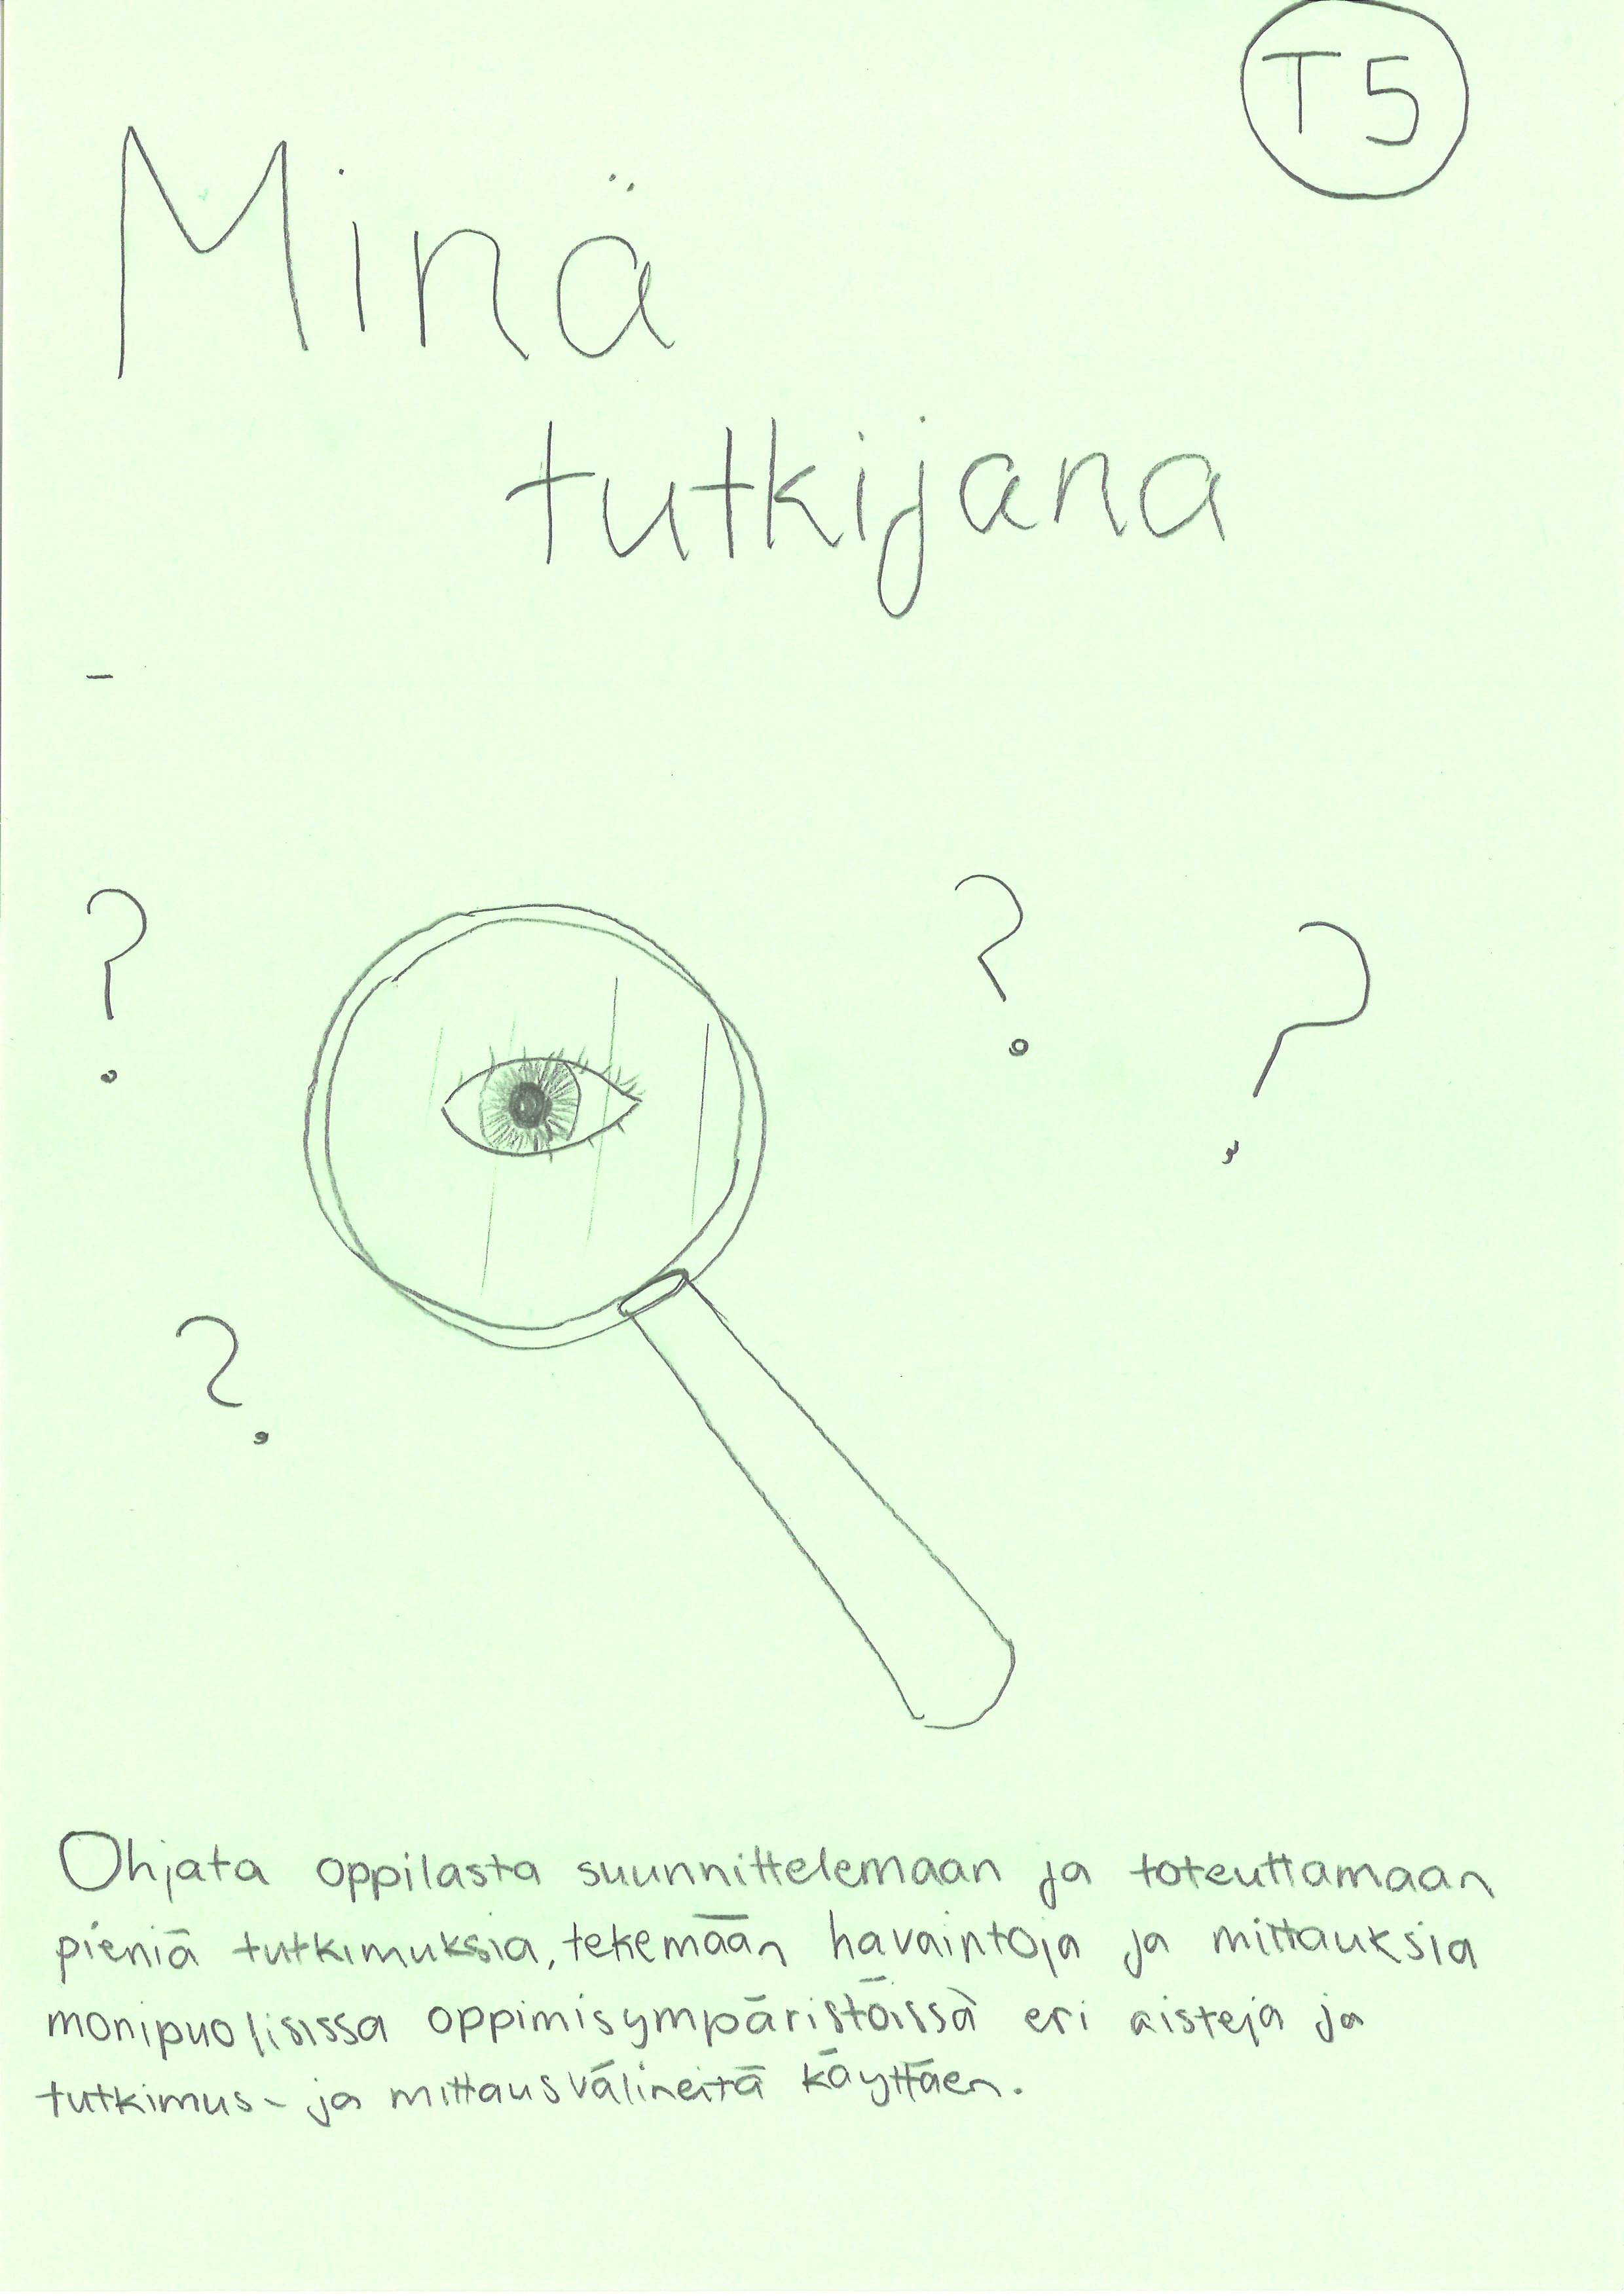 T5
Minä
tutkijana
?
?
?
?
Ohjata oppilasta suunnittelemaan ja toteuttamaan
pieniä tutkimuksia, tekemään havaintoja ja mittauksia
monipuolisissa oppimisympäristöissä eri aisteja ja
tutkimus- ja mittausvälineitä käyttäen.